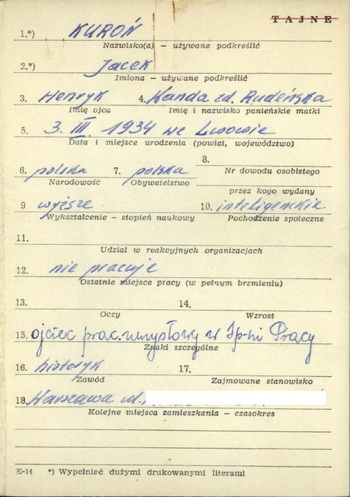 TAJNE
1.*) KUROŃ
Nazwisko(a) – używane podkreślić
2.*) Jacek
Imiona – używane podkreślić
3. Henryk 4. Wanda zd. Rudeńska
Imię ojca Imię i nazwisko panieńskie matki
5. 3. III. 1934 we Lwowie
Data i miejsce urodzenia (powiat, województwo)
8.
6. polska 7. polska Nr dowodu osobistego
Narodowość Obywatelstwo
przez kogo wydany
9 wyższe 10. inteligenckie
Wykształcenie – stopień naukowy Pochodzenie społeczne
11.
Udział w reakcyjnych organizacjach
12. nie pracuje
Ostatnie miejsce pracy (w pełnym brzmieniu)
13. 14.
Oczy Wzrost
15. ojciec prac. umysłowy w Sp-ni Pracy
Znaki szczególne
16. historyk 17.
Zawód Zajmowane stanowisko
18. Warszawa ul.
Kolejne miejsca zamieszkania – czasokres
E-14 *) Wypełnić dużymi drukowanymi literami